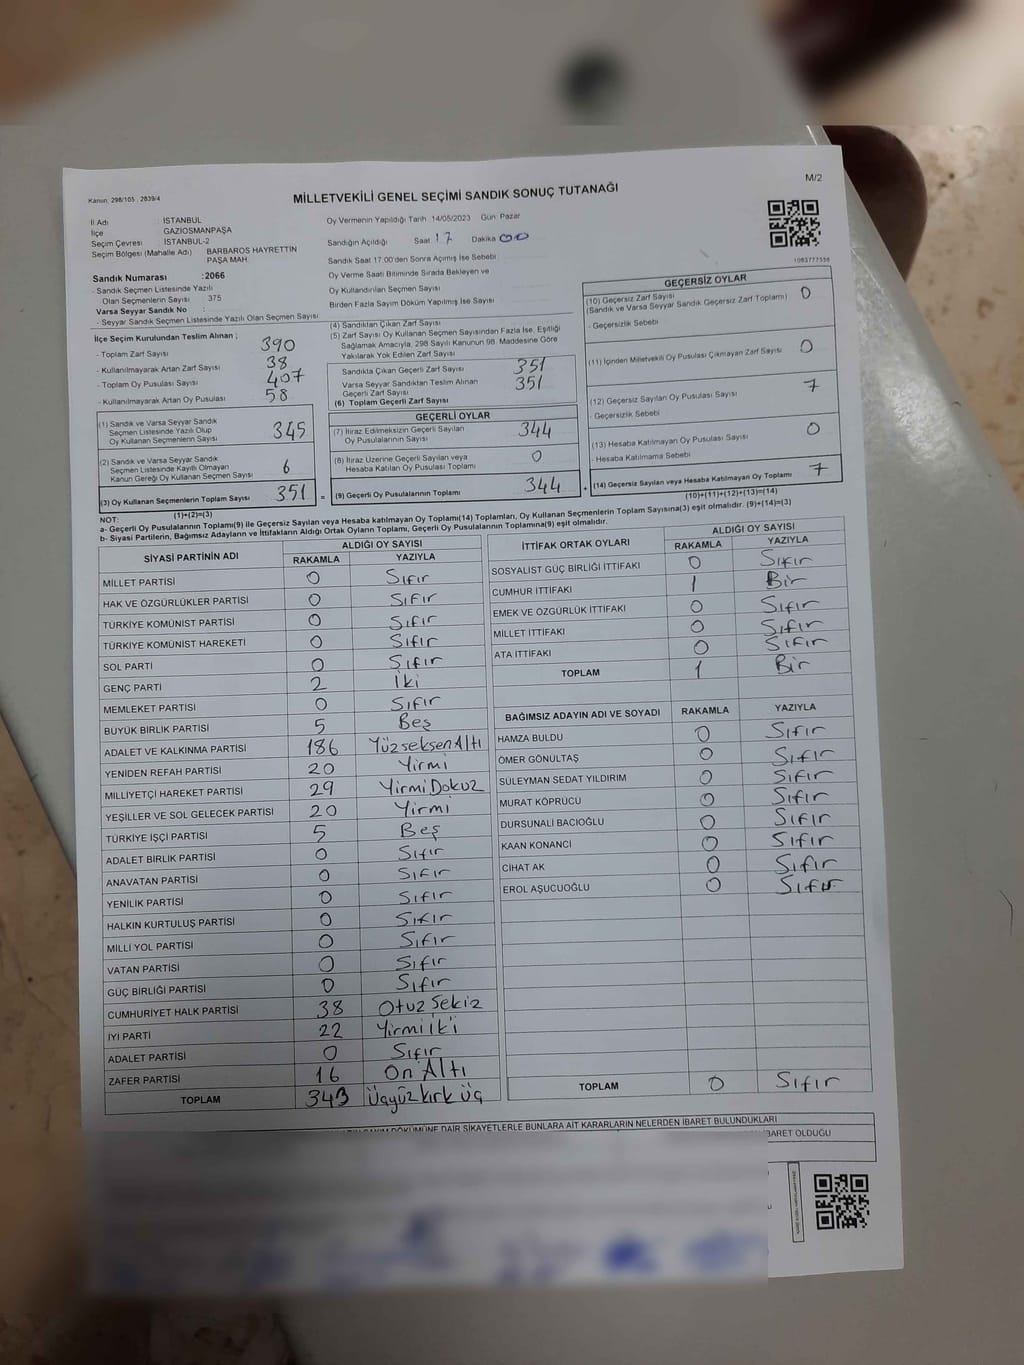 Kanun: 298/105 , 2839/4
MİLLETVEKİLİ GENEL SEÇİMİ SANDIK SONUÇ TUTANAĞI
M/2
İl Adı : İSTANBUL
İlçe GAZİOSMANPAŞA
Seçim Çevresi : İSTANBUL-2
Seçim Bölgesi (Mahalle Adı) : BARBAROS HAYRETTİN PAŞA MAH.
Sandık Numarası : 2066
- Sandık Seçmen Listesinde Yazılı
Olan Seçmenlerin Sayısı : 375
Varsa Seyyar Sandık No :
- Seyyar Sandık Seçmen Listesinde Yazılı Olan Seçmen Sayısı:
Oy Vermenin Yapıldığı Tarih :14/05/2023 Gün: Pazar
Sandığın Açıldığı Saat 17 Dakika 00
Sandık Saat 17.00'den Sonra Açımış İse Sebebi
Oy Verme Saati Bitiminde Sırada Bekleyen ve
Oy Kullandırılan Seçmen Sayısı
Birden Fazla Sayım Döküm Yapılmış İse Sayısı
1083777556
İlçe Seçim Kurulundan Teslim Alınan ;
- Toplam Zarf Sayısı 390
- Kullanılmayarak Artan Zarf Sayısı 38
- Toplam Oy Pusulası Sayısı 407
- Kullanılmayarak Artan Oy Pusulası 58
(1) Sandık ve Varsa Seyyar Sandık
Seçmen Listesinde Yazılı Olup
Oy Kullanan Seçmenlerin Sayısı 345
(2) Sandık ve Varsa Seyyar Sandık
Seçmen Listesinde Kayıtlı Olmayan
Kanun Gereği Oy Kullanan Seçmen Sayısı 6
(3) Oy Kullanan Seçmenlerin Toplam Sayısı 351 =
(1)+(2)=(3)
(4) Sandıktan Çıkan Zarf Sayısı
(5) Zarf Sayısı Oy Kullanan Seçmen Sayısından Fazla İse, Eşitliği
Sağlamak Amacıyla, 298 Sayılı Kanunun 98. Maddesine Göre
Yakılarak Yok Edilen Zarf Sayısı
Sandıkta Çıkan Geçerli Zarf Sayısı 351
Varsa Seyyar Sandıktan Teslim Alınan
Geçerli Zarf Sayısı 351
(6) Toplam Geçerli Zarf Sayısı
GEÇERLİ OYLAR
(7) İtiraz Edilmeksizin Geçerli Sayılan
Oy Pusulalarının Sayısı 344
(8) İtiraz Üzerine Geçerli Sayılan veya
Hesaba Katılan Oy Pusulası Toplamı 0
(9) Geçerli Oy Pusulalarının Toplamı 344 +
GEÇERSİZ OYLAR
(10) Geçersiz Zarf Sayısı
(Sandık ve Varsa Seyyar Sandık Geçersiz Zarf Toplamı) 0
- Geçersizlik Sebebi
(11) İçinden Milletvekili Oy Pusulası Çıkmayan Zarf Sayısı 0
(12) Geçersiz Sayılan Oy Pusulası Sayısı 7
- Geçersizlik Sebebi
(13) Hesaba Katılmayan Oy Pusulası Sayısı 0
- Hesaba Katılmama Sebebi
(14) Geçersiz Sayılan veya Hesaba Katılmayan Oy Toplamı 7
(10)+(11)+(12)+(13)=(14)
NOT:
a- Geçerli Oy Pusulalarının Toplamı(9) ile Geçersiz Sayılan veya Hesaba katılmayan Oy Toplamı(14) Toplamları, Oy Kullanan Seçmenlerin Toplam Sayısına(3) eşit olmalıdır. (9)+(14)=(3)
b- Siyasi Partilerin, Bağımsız Adayların ve İttifakların Aldığı Ortak Oyların Toplamı, Geçerli Oy Pusulalarının Toplamına(9) eşit olmalıdır.
SİYASİ PARTİNİN ADI ALDIĞI OY SAYISI
RAKAMLA YAZIYLA
MİLLET PARTİSİ 0 Sıfır
HAK VE ÖZGÜRLÜKLER PARTİSİ 0 Sıfır
TÜRKİYE KOMÜNİST PARTİSİ 0 Sıfır
TÜRKİYE KOMÜNİST HAREKETİ 0 Sıfır
SOL PARTİ 0 Sıfır
GENÇ PARTİ 2 İki
MEMLEKET PARTİSİ 0 Sıfır
BÜYÜK BİRLİK PARTİSİ 5 Beş
ADALET VE KALKINMA PARTİSİ 186 YüzseksenAltı
YENİDEN REFAH PARTİSİ 20 Yirmi
MİLLİYETÇİ HAREKET PARTİSİ 29 YirmiDokuz
YEŞİLLER VE SOL GELECEK PARTİSİ 20 Yirmi
TÜRKİYE İŞÇİ PARTİSİ 5 Beş
ADALET BİRLİK PARTİSİ 0 Sıfır
ANAVATAN PARTİSİ 0 Sıfır
YENİLİK PARTİSİ 0 Sıfır
HALKIN KURTULUŞ PARTİSİ 0 Sıfır
MİLLİ YOL PARTİSİ 0 Sıfır
VATAN PARTİSİ 0 Sıfır
GÜÇ BİRLİĞİ PARTİSİ 0 Sıfır
CUMHURİYET HALK PARTİSİ 38 Otuz Sekiz
İYİ PARTİ 22 Yirmi iki
ADALET PARTİSİ 0 Sıfır
ZAFER PARTİSİ 16 On Altı
TOPLAM 343 Üçyüz kırk üç
İTTİFAK ORTAK OYLARI ALDIĞI OY SAYISI
RAKAMLA YAZIYLA
SOSYALİST GÜÇ BİRLİĞİ İTTİFAKI 0 Sıfır
CUMHUR İTTİFAKI 1 Bir
EMEK VE ÖZGÜRLÜK İTTİFAKI 0 Sıfır
MİLLET İTTİFAKI 0 Sıfır
ATA İTTİFAKI 0 Sıfır
TOPLAM 1 Bir
BAĞIMSIZ ADAYIN ADI VE SOYADI RAKAMLA YAZIYLA
HAMZA BULDU 0 Sıfır
ÖMER GÖNÜLTAŞ 0 Sıfır
SÜLEYMAN SEDAT YILDIRIM 0 Sıfır
MURAT KÖPRÜCÜ 0 Sıfır
DURSUNALİ BACIOĞLU 0 Sıfır
KAAN KONANCİ 0 Sıfır
CİHAT AK 0 Sıfır
EROL AŞUCUOĞLU 0 Sıfır
TOPLAM 0 Sıfır
DÖKÜMÜNE DAİR ŞİKAYETLERLE BUNLARA AİT KARARLARIN NELERDEN İBARET BULUNDUKLARI
İBARET OLDUĞU